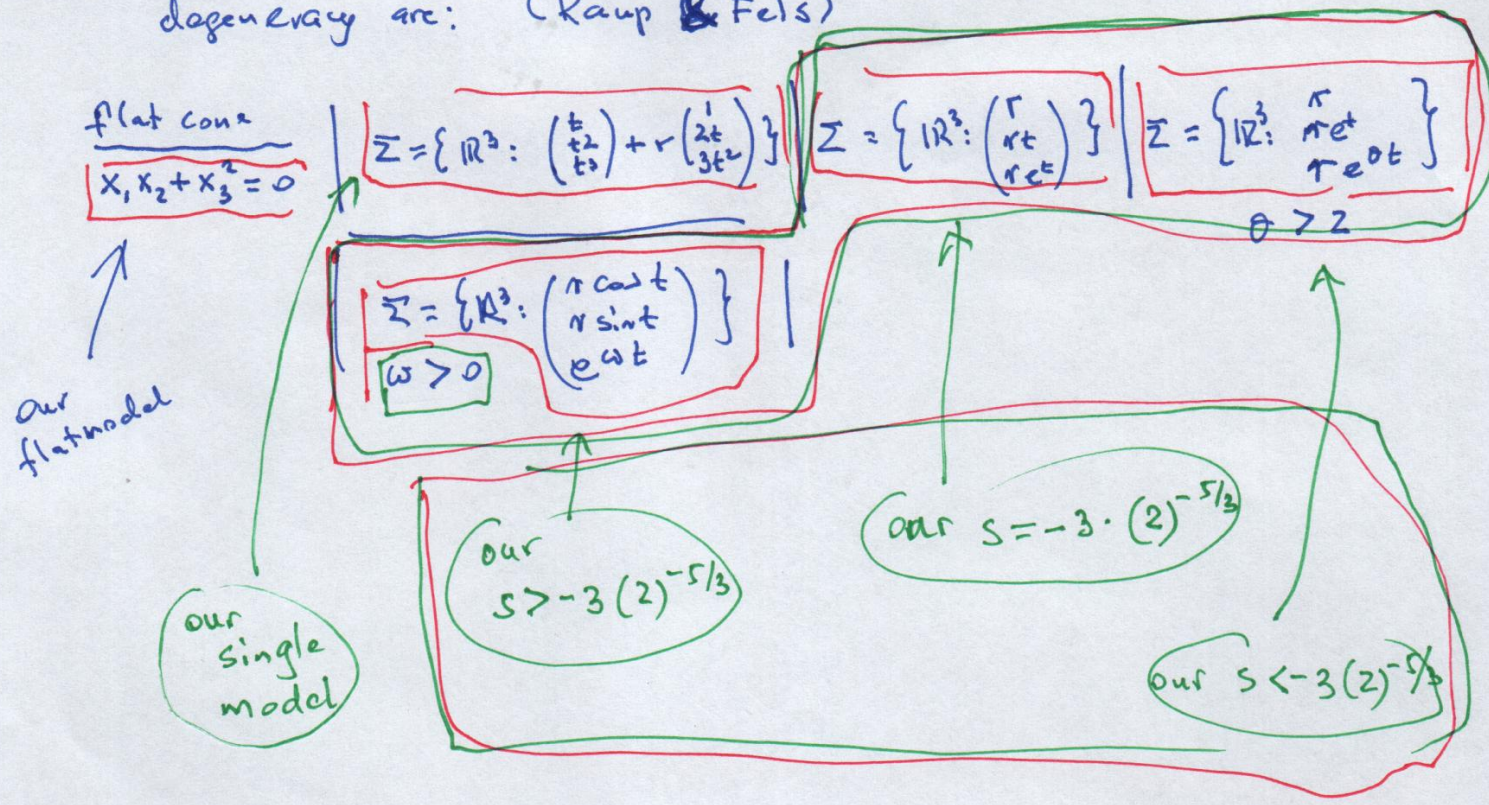 degeneracy are: (Kaup & Fels)
flat cone
x₁x₂ + x₃² = 0
Σ = { ℝ³ : (t, t², t³) + r (1, 2t, 3t²) }
Σ = { ℝ³ : (r, rt, re^t) }
Σ = { ℝ³ : r, re^t, re^{θt} }
θ > 2
Σ = { ℝ³ : (r cos t, r sin t, e^{ωt}) }
ω > 0
our
flat model
our
single
model
our
s > -3 (2)^{-5/3}
our s = -3 · (2)^{-5/3}
our s < -3 (2)^{-5/3}